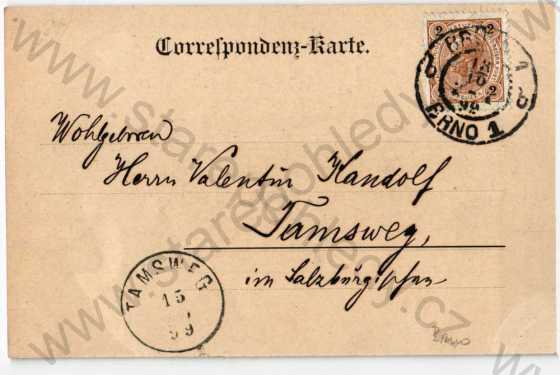 Correspondenz-Karte.
2 2
BRÜNN 1
13
10
99
BRNO 1
Wohlgeboren
Herrn Valentin Kandolf
Tamsweg,
im Salzburgischen
TAMSWEG
15
99
Brno
www.starepohledy.cz